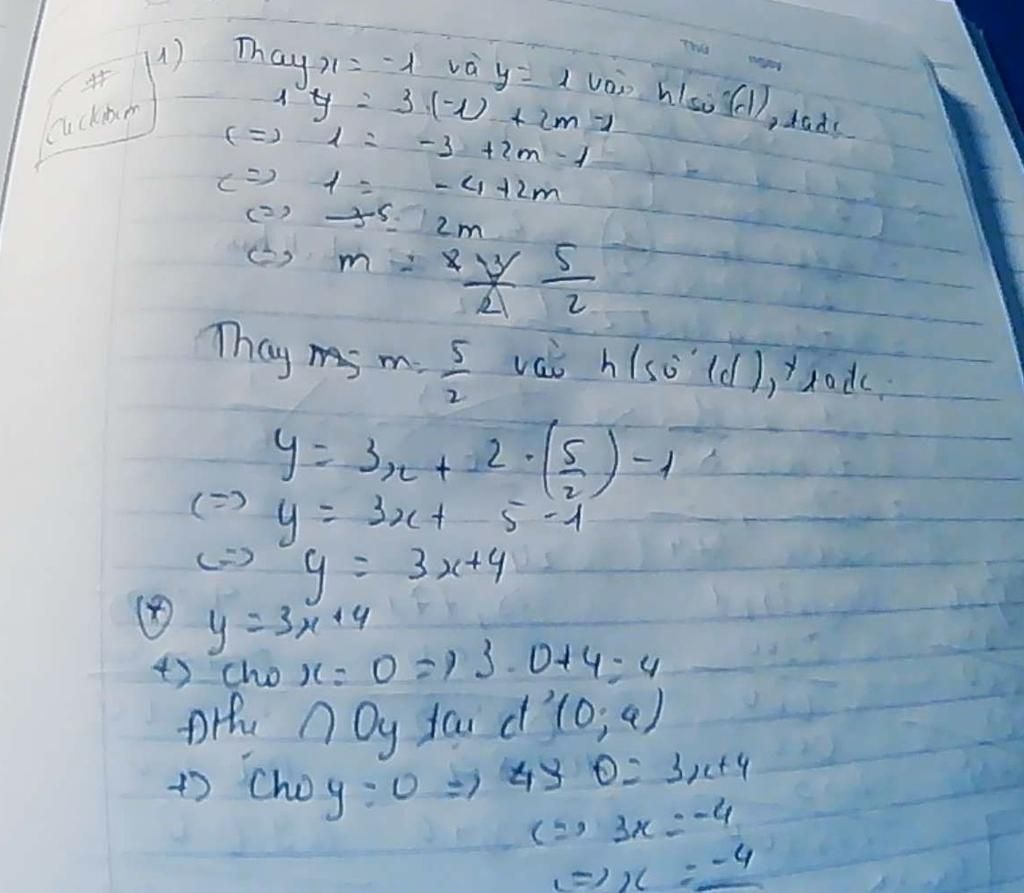 1) Thay x = -1 và y = 1 vào h/số (d), tađc
1 = 3.(-1) + 2m -1
<=> 1 = -3 +2m -1
<=> 1 = -4 +2m
<=> 5 = 2m
<=> m = 5/2
Thay m = 5/2 vào h/số (d), tađc
y = 3x + 2 . (5/2) - 1
<=> y = 3x + 5 - 1
<=> y = 3x+4
(*) y = 3x+4
+) Cho x = 0 => 3.0+4 = 4
Đthị ∩ Oy tại đ' (0; 4)
+) Cho y = 0 => 0 = 3x+4
<=> 3x = -4
<=> x = -4